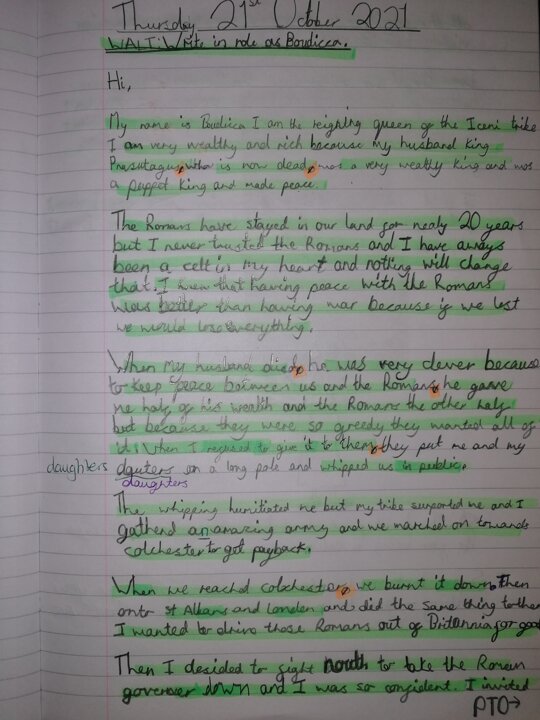 Thursday 21st October 2021
WALT: Write in role as Boudicca.
Hi,
My name is Budicca I am the reighing queen of the Iceni tribe
I am very wealthy and rich because my husband king
Prasutagus, who is now dead, was a very wealthy king and was
a puppet king and made peace.
The Romans have stayed in our land for nealy 20 years
but I never trusted the Romans and I have always
been a celt in my heart and nothing will change
that. I knew that having peace with the Romans
was better than having war because if we lost
we would lose everything.
When my husband died, he was very clever because
to keep peace between us and the Romans, he gave
me half of his wealth and the Romans the other half
but because they were so greedy they wanted all of
it. When I refused to give it to them, they put me and my
daughters dauters on a long pole and whipped us in public.
daughters
The whipping humiliated me but my tribe supported me and I
gatherd an amazing army and we marched on towards
colchester to got payback.
When we reached colchester, we burnt it down. Then
onto st Albans and london and did the same thing to them
I wanted to drive those Romans out of Britannia for good
Then I decided to fight nouth to take the Roman
governer down and I was so confident. I invited
PTO→